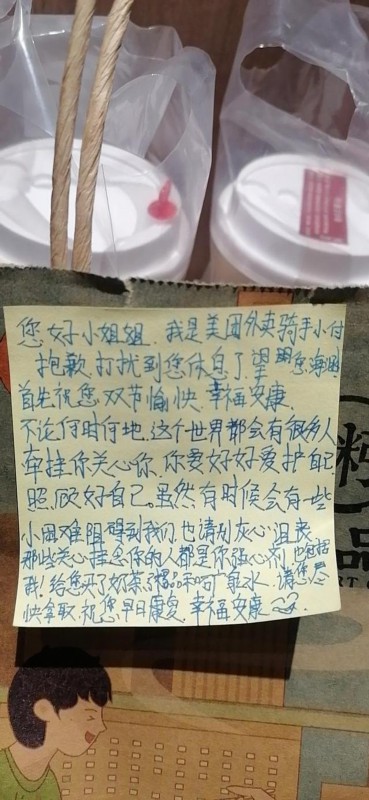 您好小姐姐，我是美团外卖骑手小付
抱歉，打扰到您休息了，望您海涵
首先祝您双节愉快，幸福安康，
不论何时何地，这个世界都会有很多人
牵挂你关心你，你要好好爱护自己
照顾好自己。虽然有时候会有一些
小困难阻碍到我们，也请别灰心沮丧
那些关心挂念你的人都是你强心剂，也包括
我！给您买了奶茶，水，请您尽
快拿取，祝您早日康复，幸福安康
品